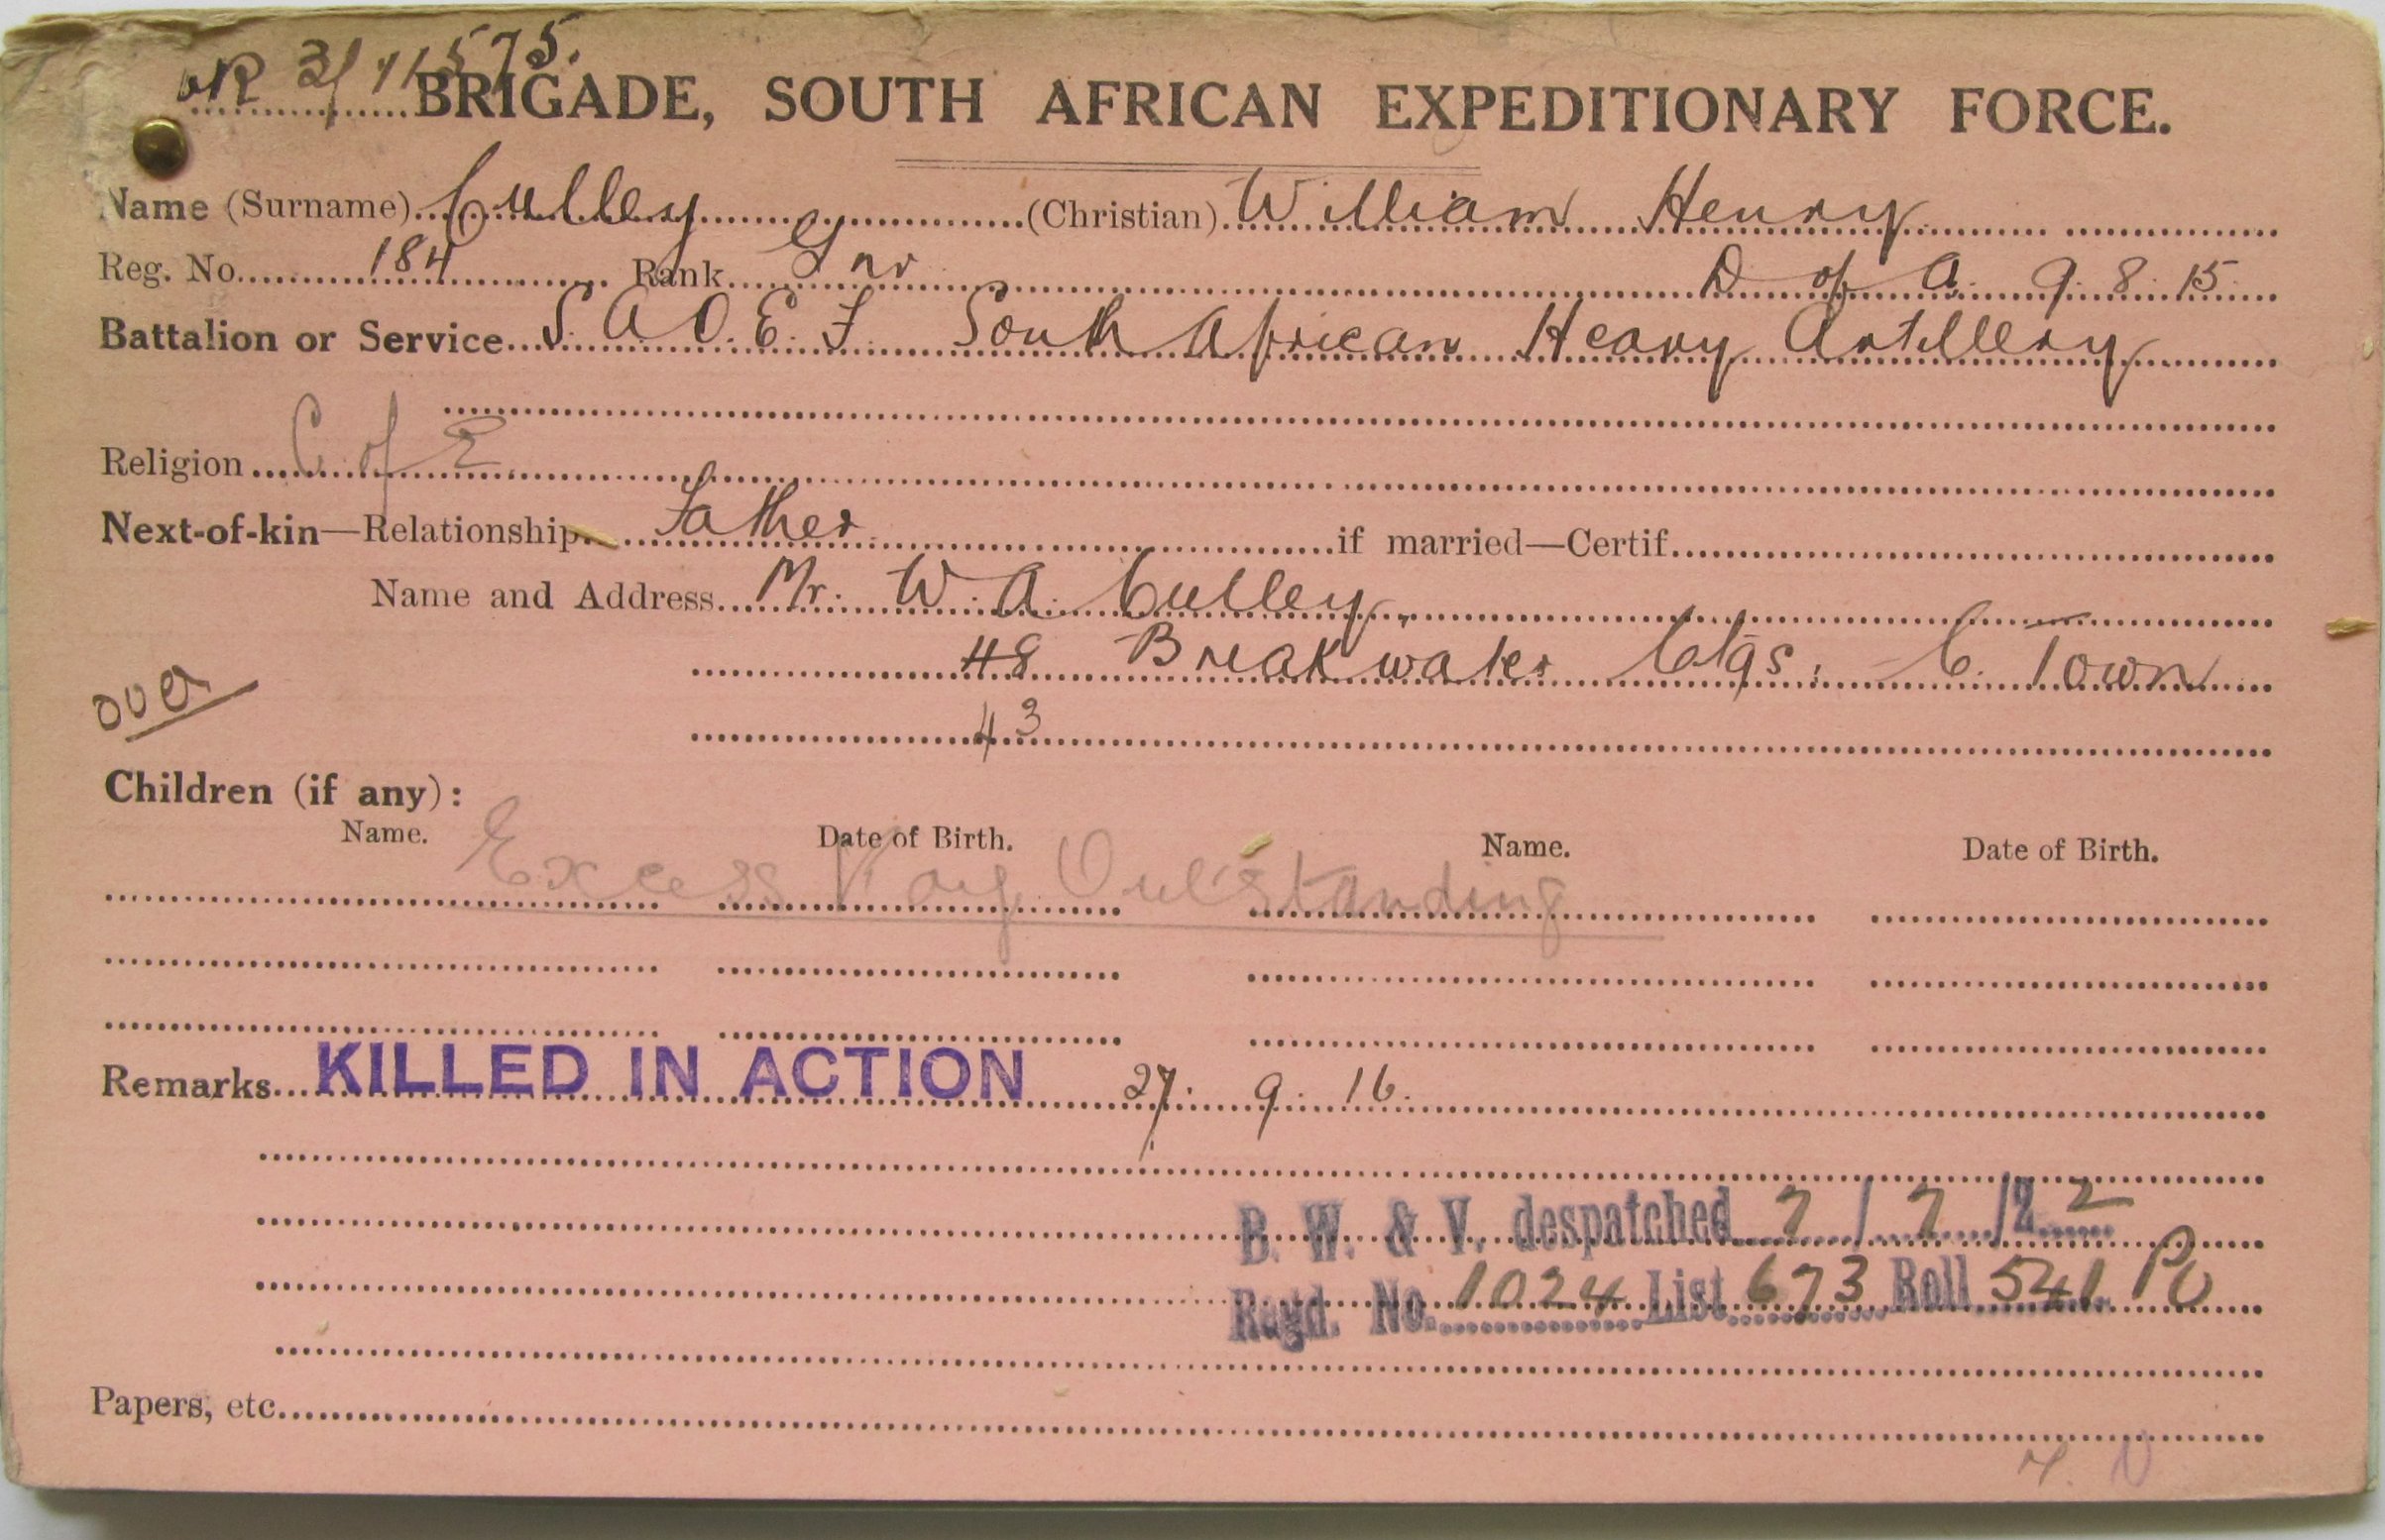 WR 3/11575.
BRIGADE, SOUTH AFRICAN EXPEDITIONARY FORCE.
Name (Surname) Culley (Christian) William Henry
Reg. No. 184 Rank Gnr D of A. 9. 8. 15
Battalion or Service S. A. O. E. F. South African Heavy Artillery
Religion C of E
Next-of-kin—Relationship Father if married—Certif.
Name and Address Mr. W. A. Culley,
48 Breakwater Ctgs, C. Town
over
43
Children (if any):
Name. Date of Birth. Name. Date of Birth.
Excess Pay Outstanding
Remarks KILLED IN ACTION 27. 9. 16.
B. W. & V. despatched 7/7/22
Regd. No. 1024 List 673 Roll 541
Papers, etc.